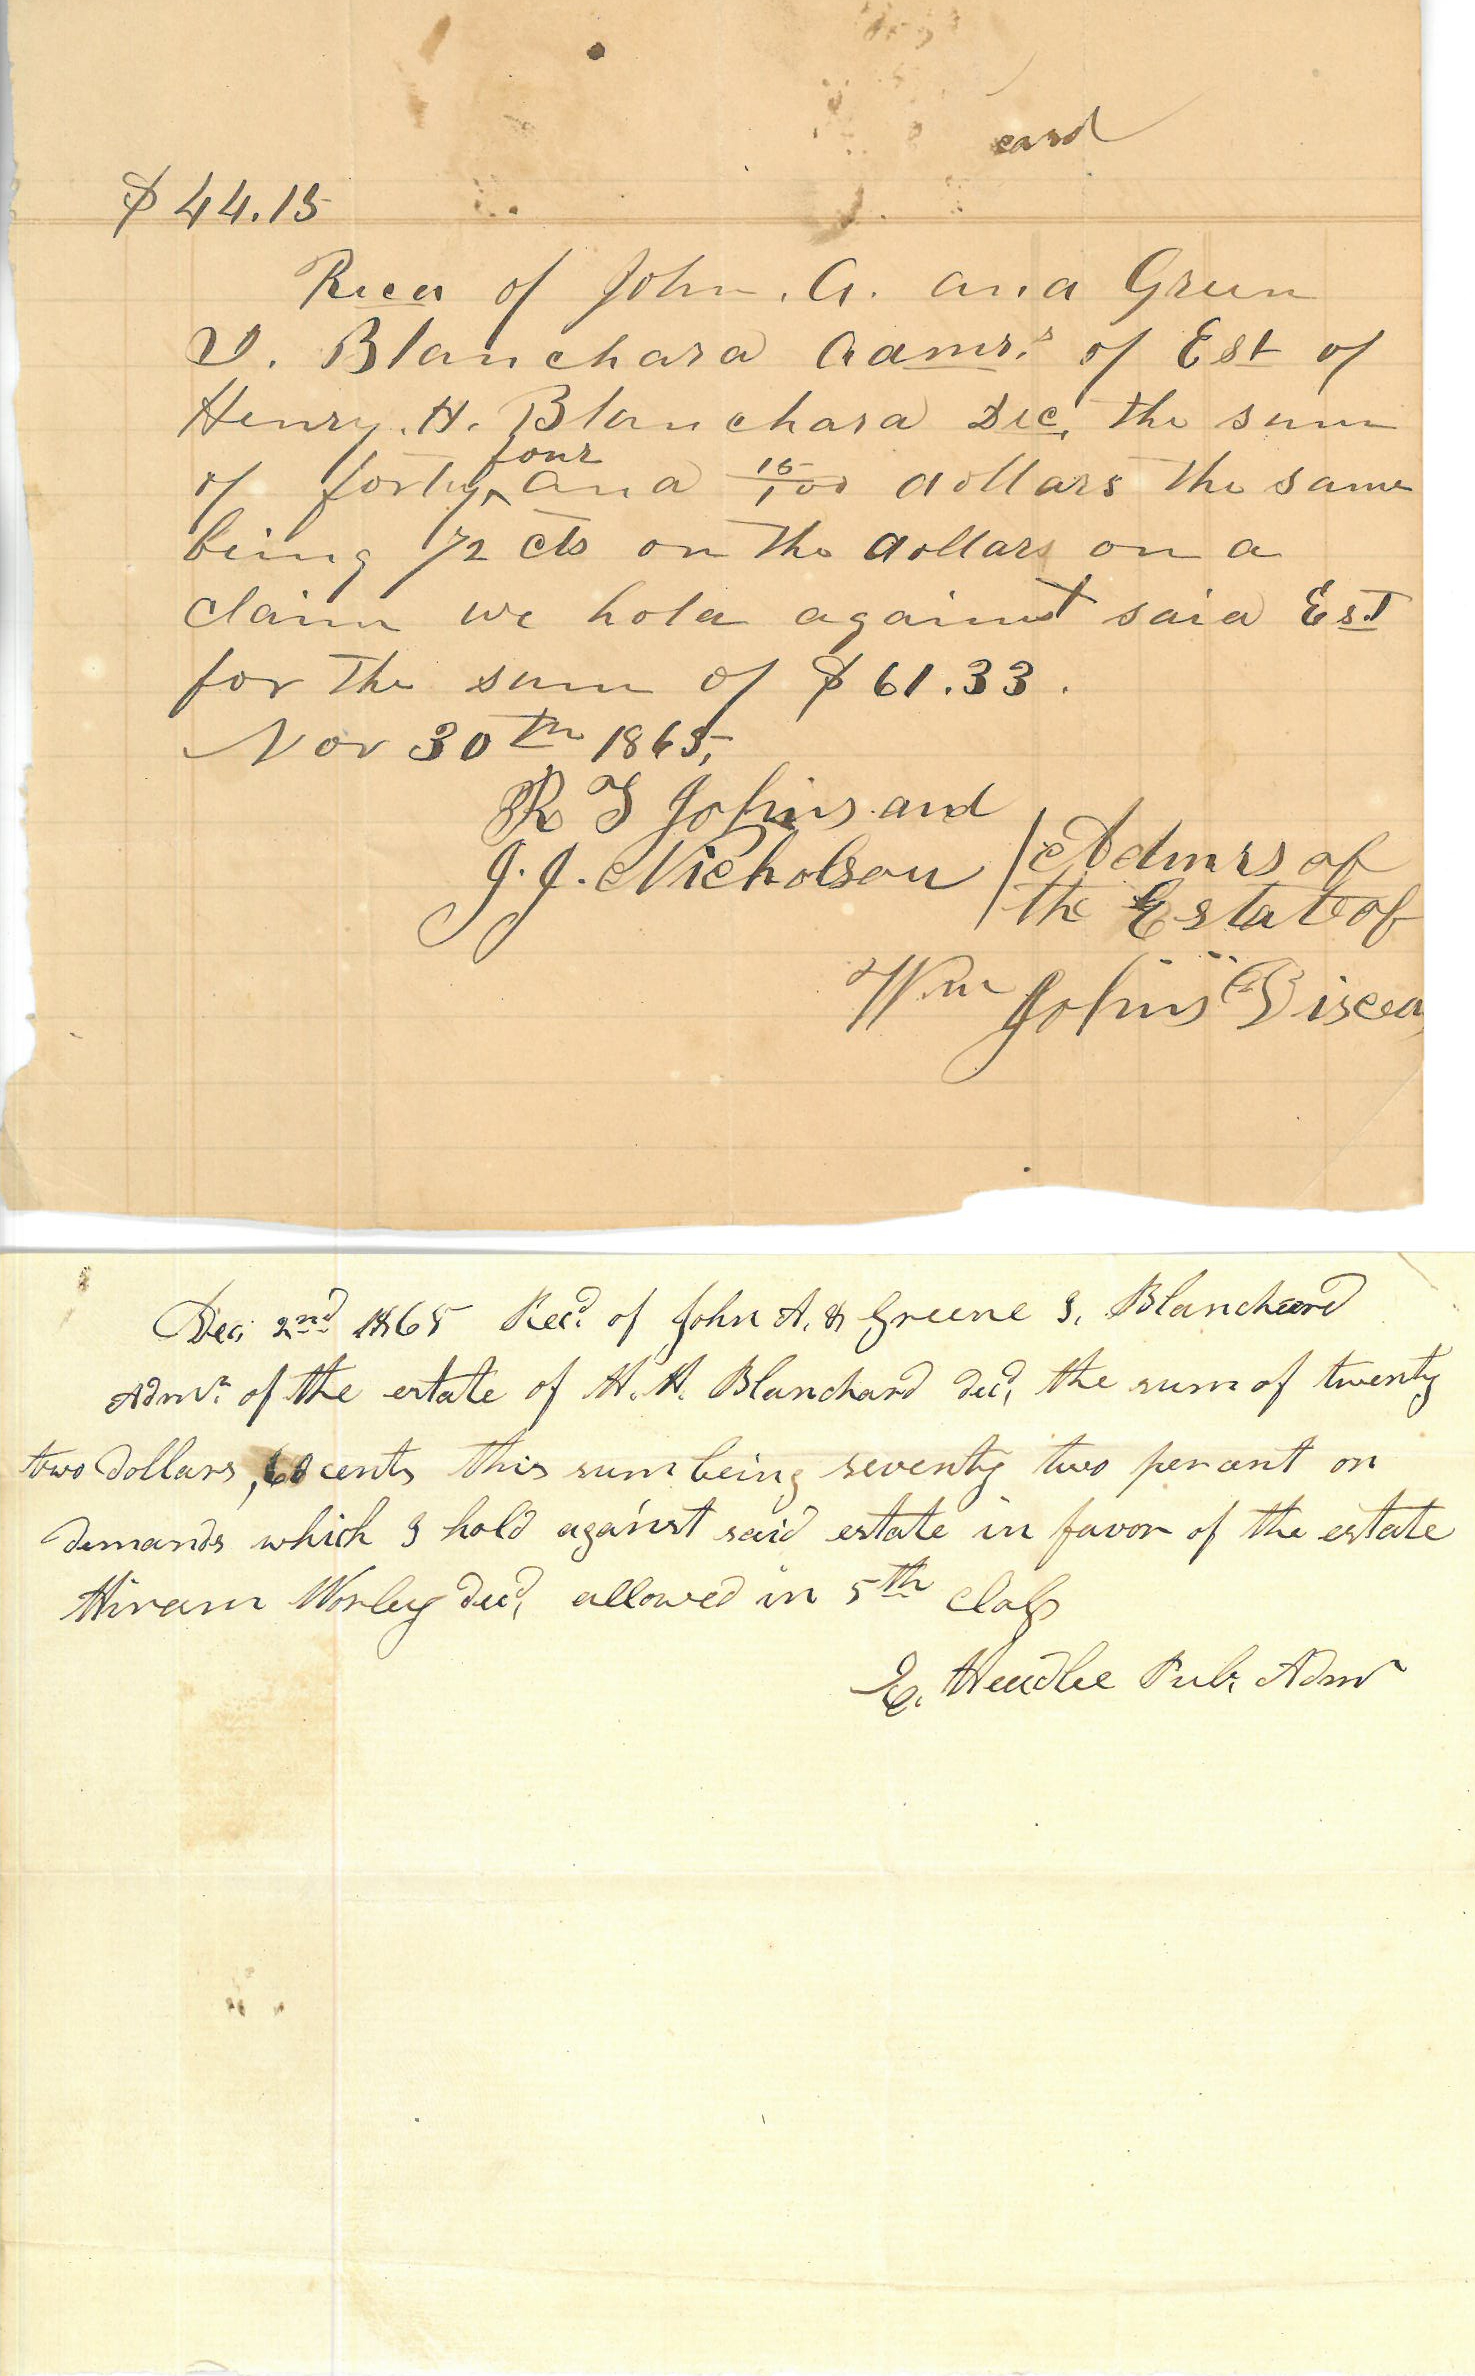 card
$44.15
Recd of John. A. and Green
I. Blanchard Admr.s of Est of
Henry. H. Blanchard Dec, the sum
of forty four and 15/100 dollars the same
being 72 cts on the dollars on a
claim we hold against said Est
for the sum of $61.33.
Nov 30th 1865,
R T Johns and
J. J. Nicholson / Admrs of
the Estate of
Wm Johns Disead
Dec. 2nd 1865 Recd. of John A. & Greene I. Blanchard
Admr. of the estate of H. H. Blanchard decd, the sum of twenty
two dollars, 60 cents this sum being seventy two percent on
demands which I hold against said estate in favor of the estate
Hiram Worley decd, allowed in 5th Class
E. Headlee Pub. Admr